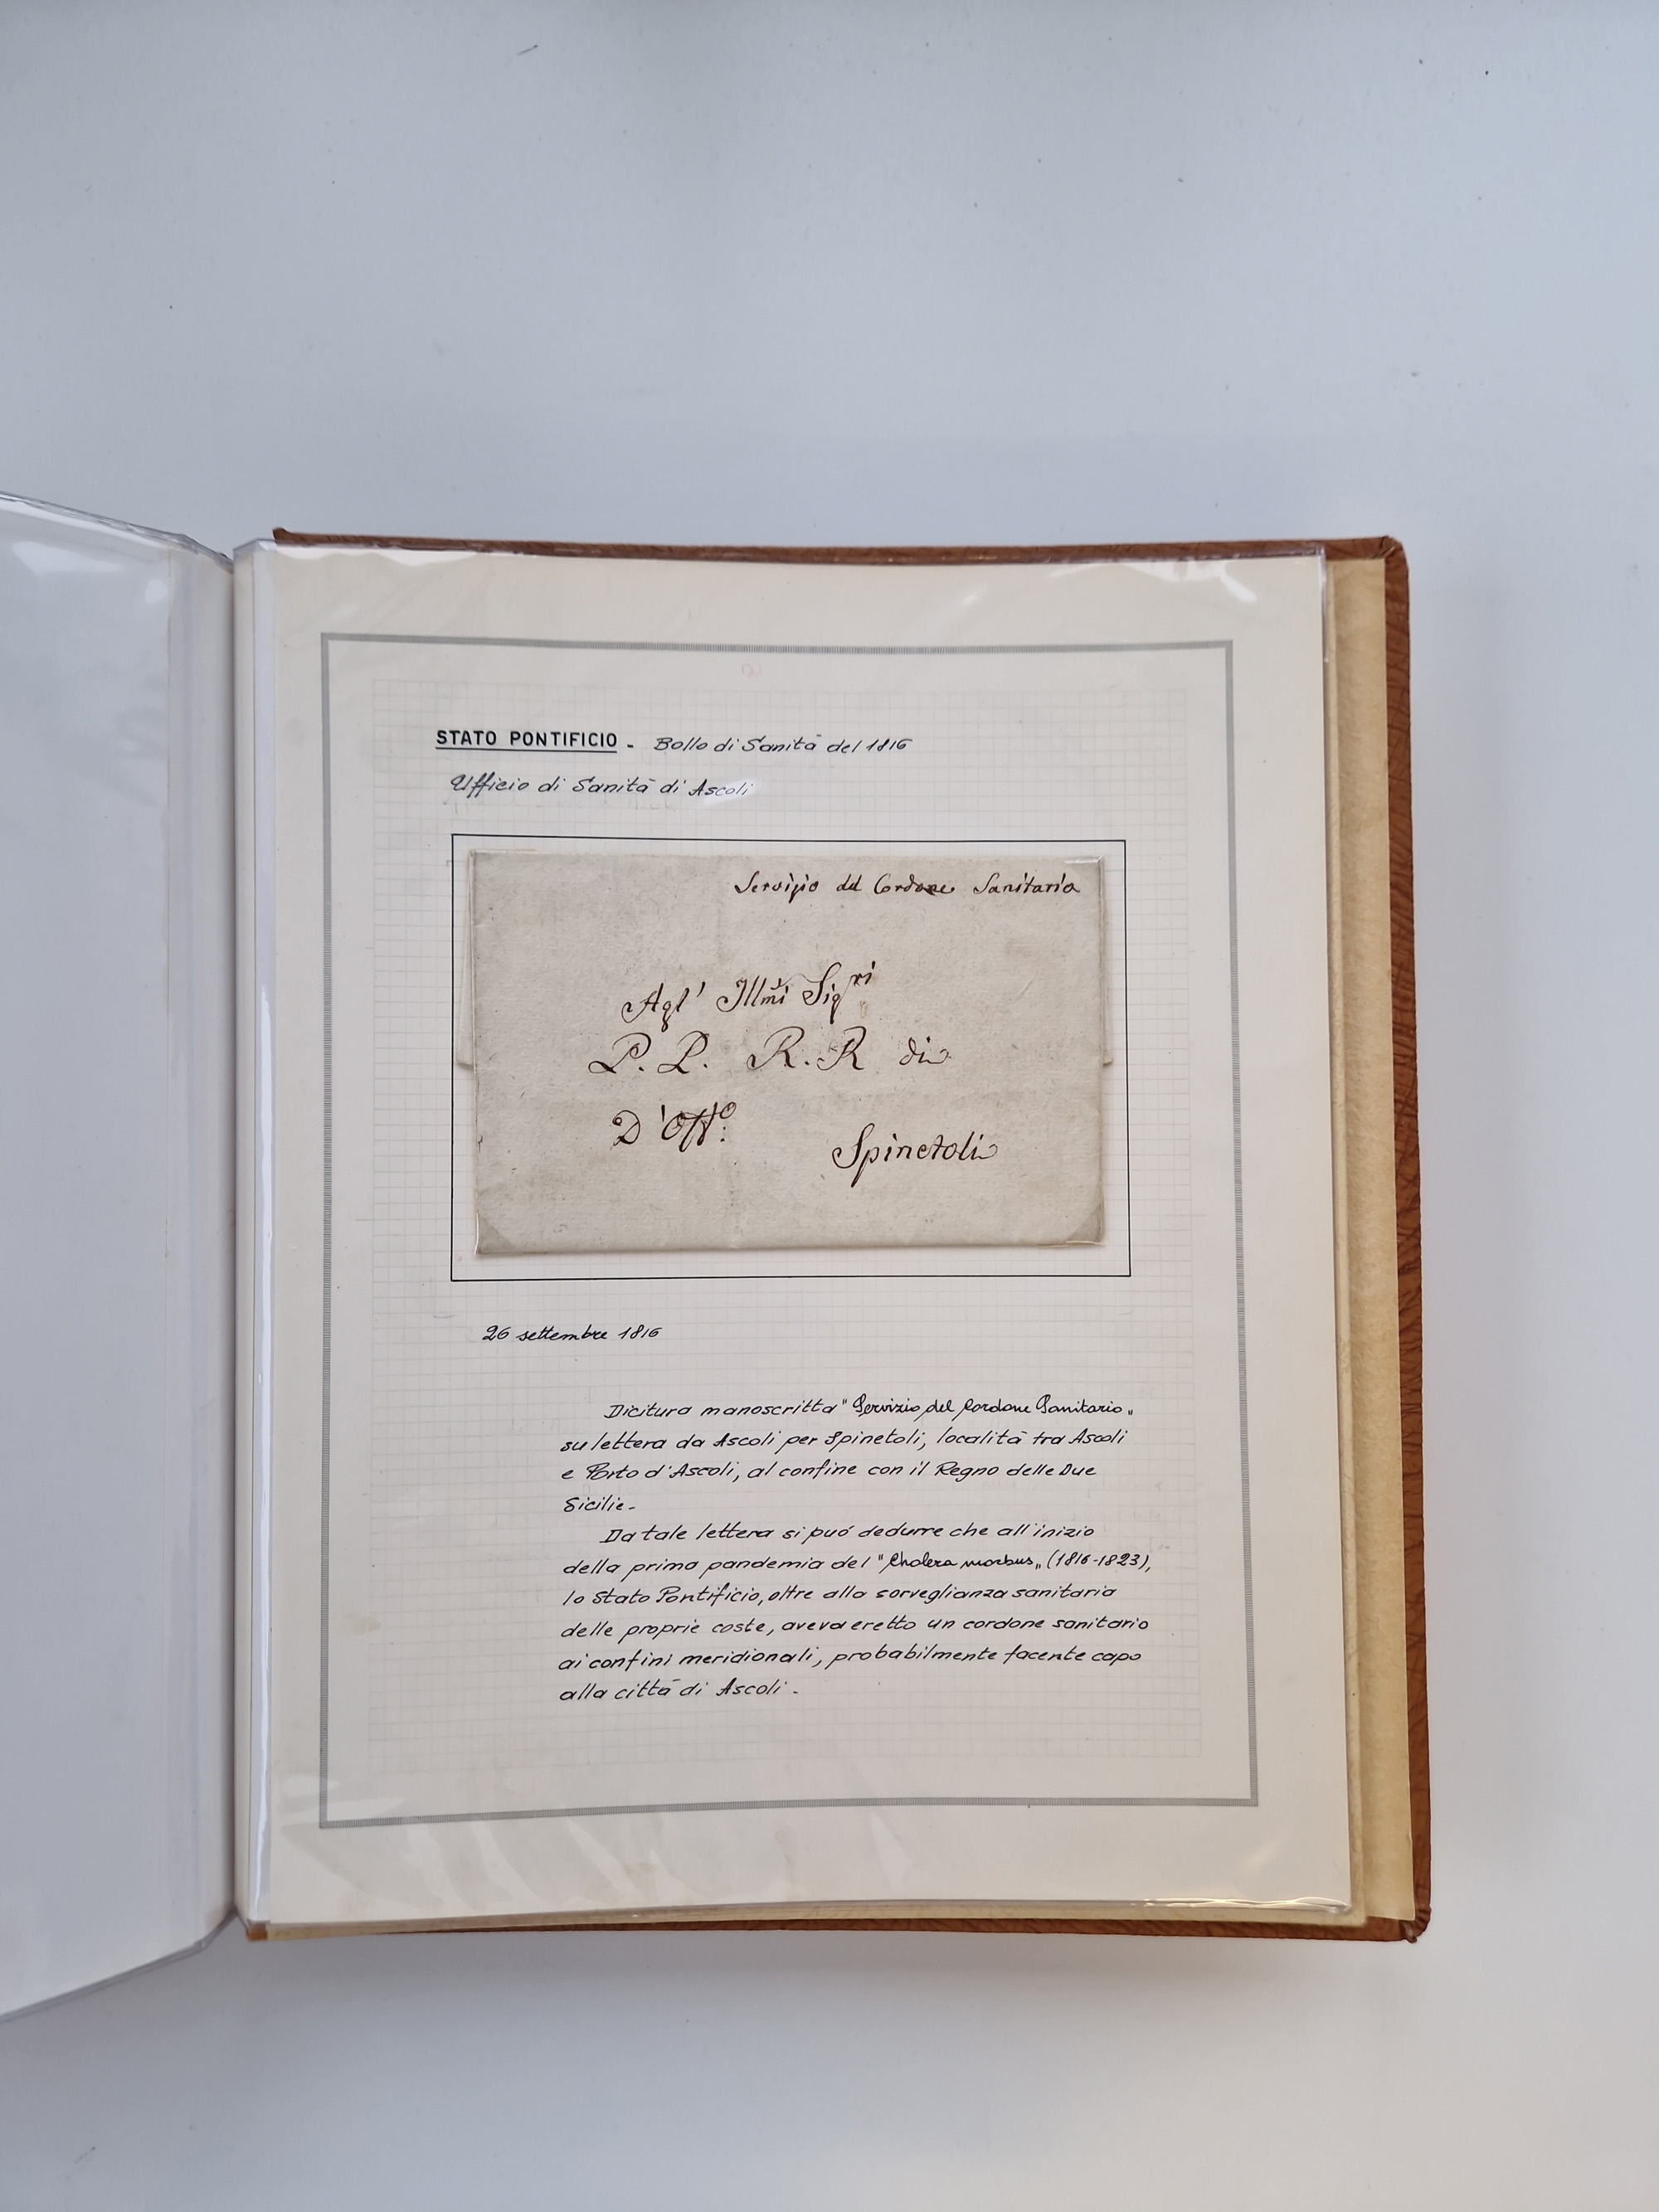 STATO PONTIFICIO - Bollo di Sanità del 1816
Ufficio di Sanità di Ascoli
Servizio del Cordone Sanitario
Agl' Illmi Sigri
P.P. R.R di
D'Offo:
Spinetoli
26 settembre 1816
Dicitura manoscritta "Servizio del Cordone Sanitario"
su lettera da Ascoli per Spinetoli, località tra Ascoli
e Porto d'Ascoli, al confine con il Regno delle Due
Sicilie-
Da tale lettera si può dedurre che all'inizio
della prima pandemia del "Cholera morbus" (1816-1823),
lo Stato Pontificio, oltre alla sorveglianza sanitaria
delle proprie coste, aveva eretto un cordone sanitario
ai confini meridionali, probabilmente facente capo
alla città di Ascoli-